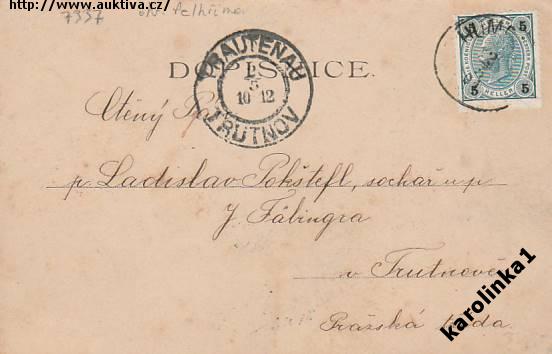 http://www.auktiva.cz/
7337 okr. Pelhřimov
HUMP
5 5
HELLER
DOPISNICE.
TRAUTENAU
5
10 12
TRUTNOV
Ctěný Pán
p. Ladislav Pokštefl, sochař u p.
J. Fábingra
v Trutnově
Pražská
karolinka1